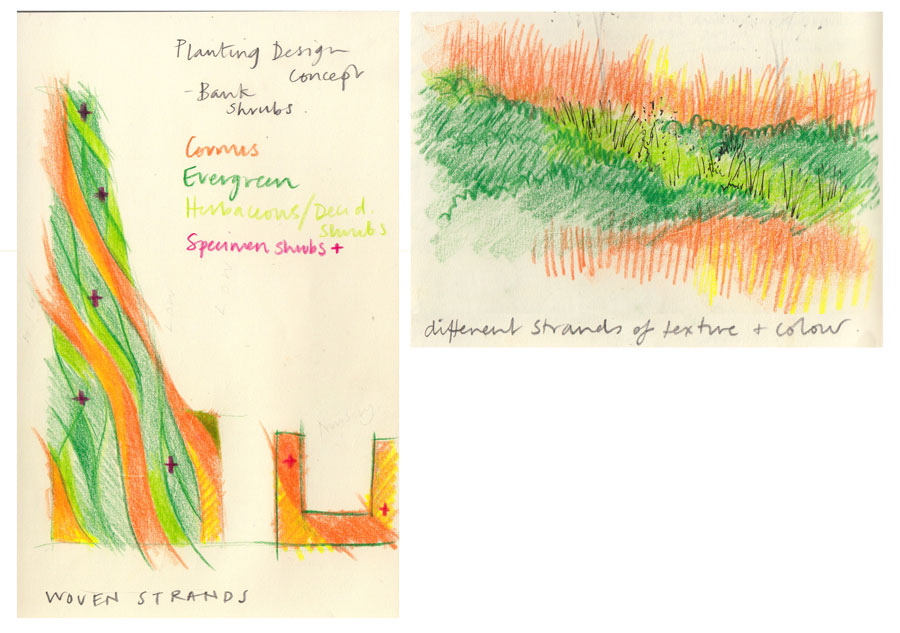 Planting Design
Concept
- Bank
Shrubs.
Cornus
Evergreen
Herbaceous/Decid.
Shrubs
Specimen shrubs +
Nursery
WOVEN STRANDS
different strands of texture + colour.